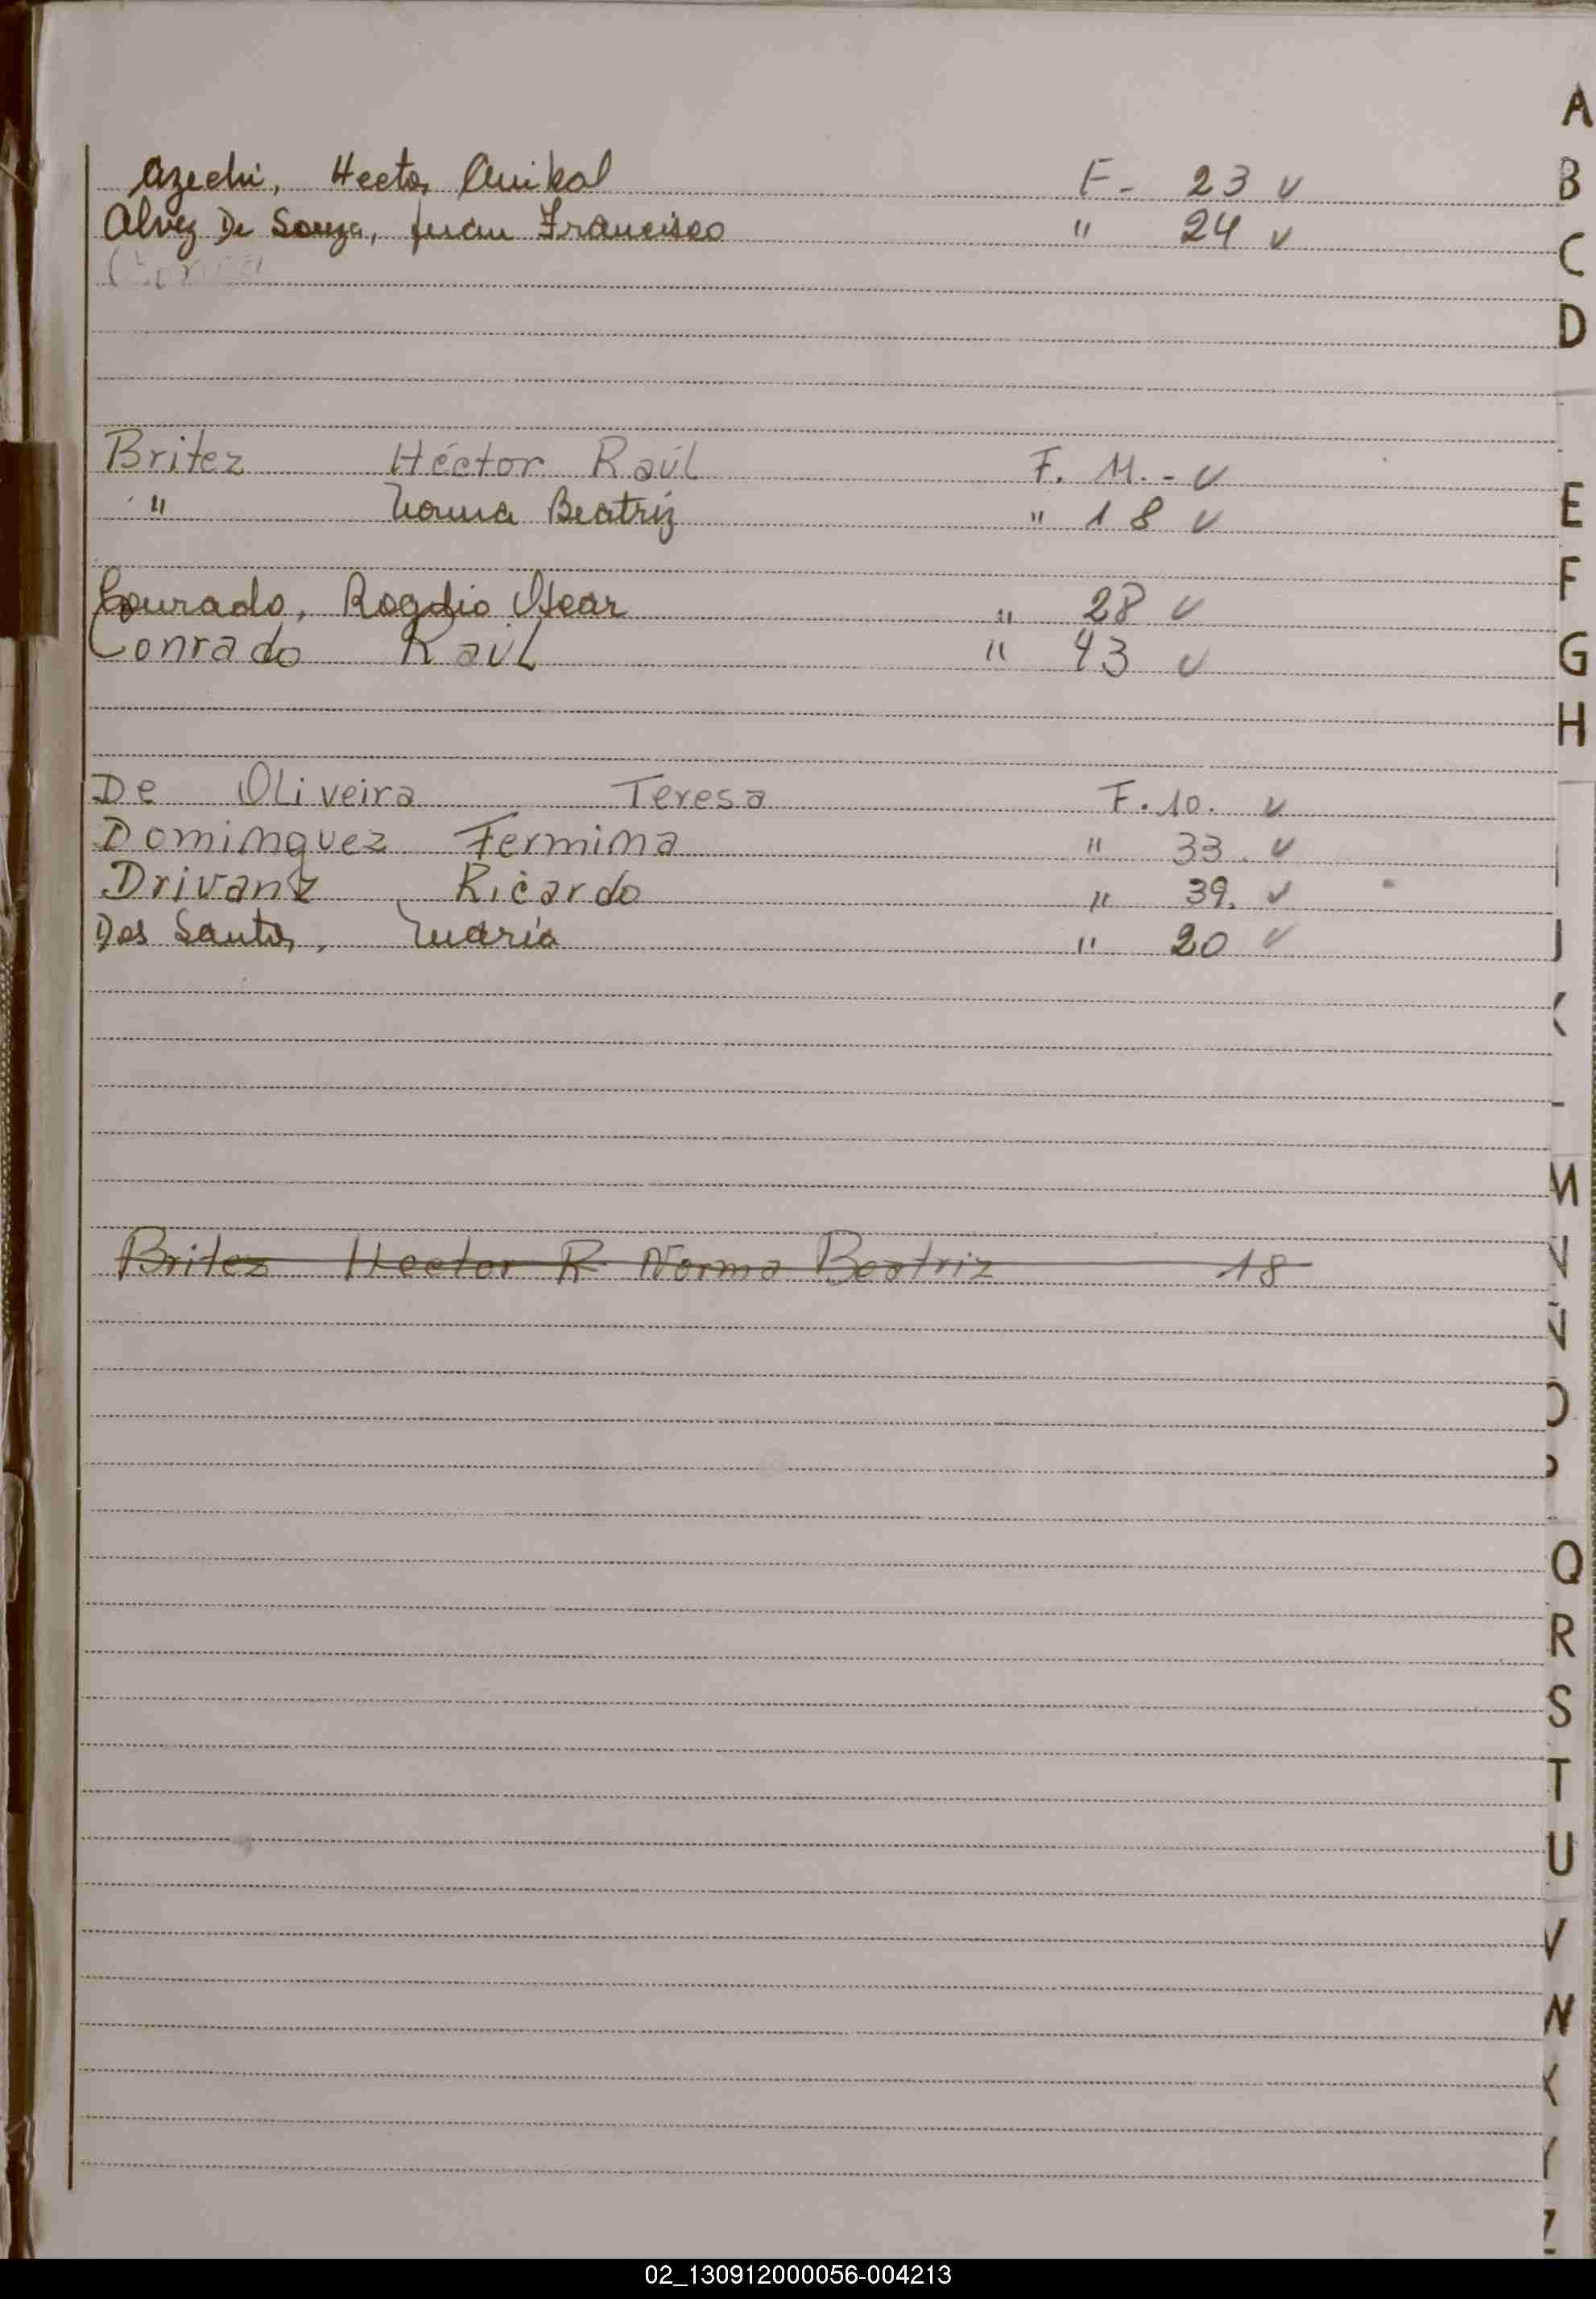 Azechi, Hector Anibal F- 23 v
Alvez De Souza, Juan Francisco " 24 v
Britez Héctor Raúl F. 11.- v
" Norma Beatriz " 18 v
Conrado, Rogelio Oscar " 28 v
Conrado Raúl " 43 v
De Oliveira Teresa F. 10. v
Dominguez Fermina " 33. v
Drivanz Ricardo " 39. v
Dos Santos, María " 20 v
Britez Hector R Norma Beatriz 18
A
B
C
D
E
F
G
H
I
J
K
L
M
N
Ñ
O
P
Q
R
S
T
U
V
W
X
Y
Z
02_130912000056-004213